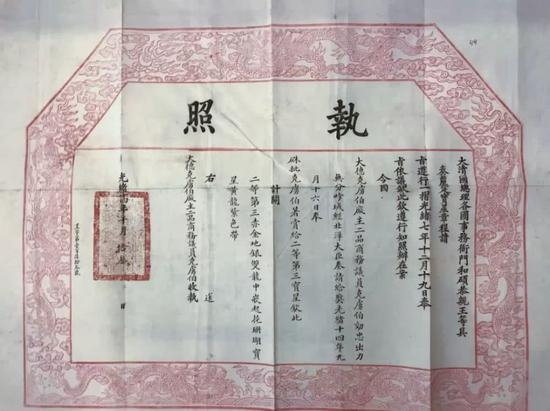 執照
大清國總理各國事務衙門和碩恭親王等具
奏釐定寶星章程請
旨遵行一摺光緒七年十二月十九日奉
旨依議欽此欽遵行知照辦在案
今因
大德克虜伯廠主二品商務議員克虜伯効忠出力
無分畛域經北洋大臣奏請給獎光緒十四年九
月十六日奉
硃批克虜伯著賞給二等第三寶星欽此
計開
二等第三赤金地銀雙龍中嵌起花珊瑚寶
星黃龍紫色帶
右 送
大德克虜伯廠主二品商務議員克虜伯收執
光緒十四年十月拾 日